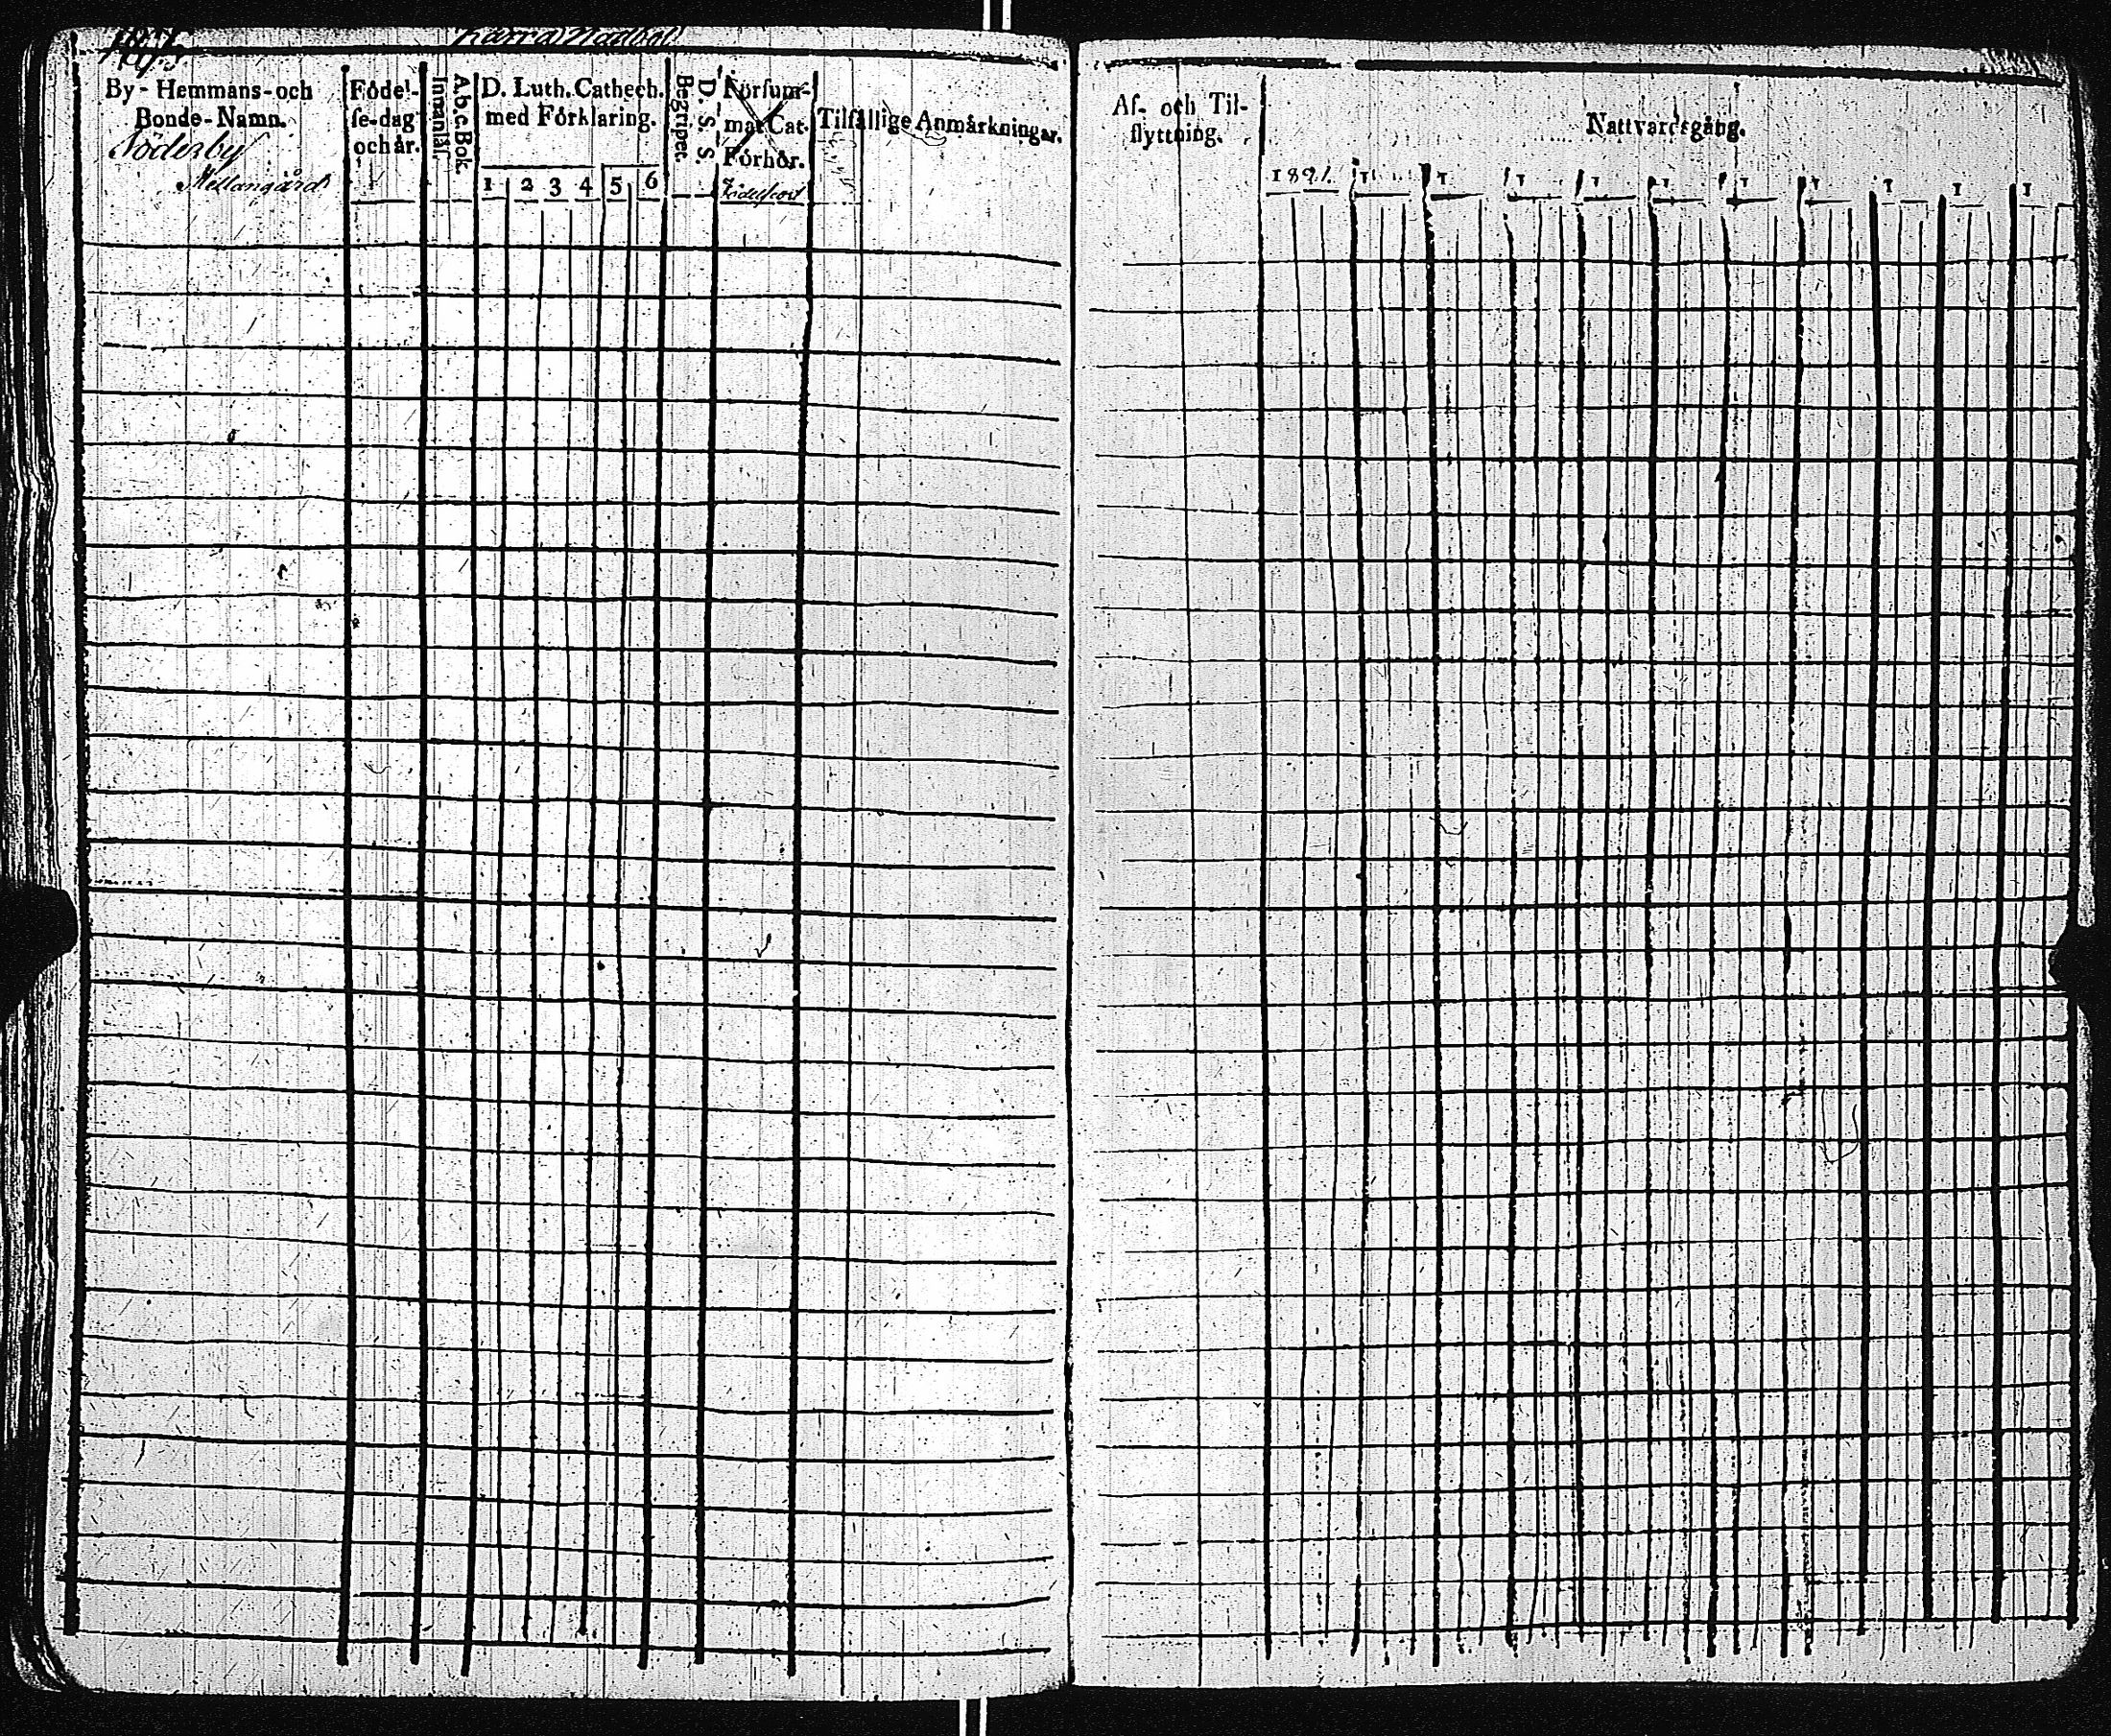 By- Hemmans- och
Bonde-Namn.
Söderby
Mellangård
Födel-
se-dag
och år.
A. b. c. Bok.
Innantål.
D. Luth. Cathech.
med Förklaring.
1 2 3 4 5 6
D. S. S.
Begripet.
Försum-
mat Cat.
Förhör.
Tilfällige Anmärkningar.
Af- och Til-
flyttning.
Nattvardsgång.
1821. 1 1 1 1 1 1 1 1 1 1